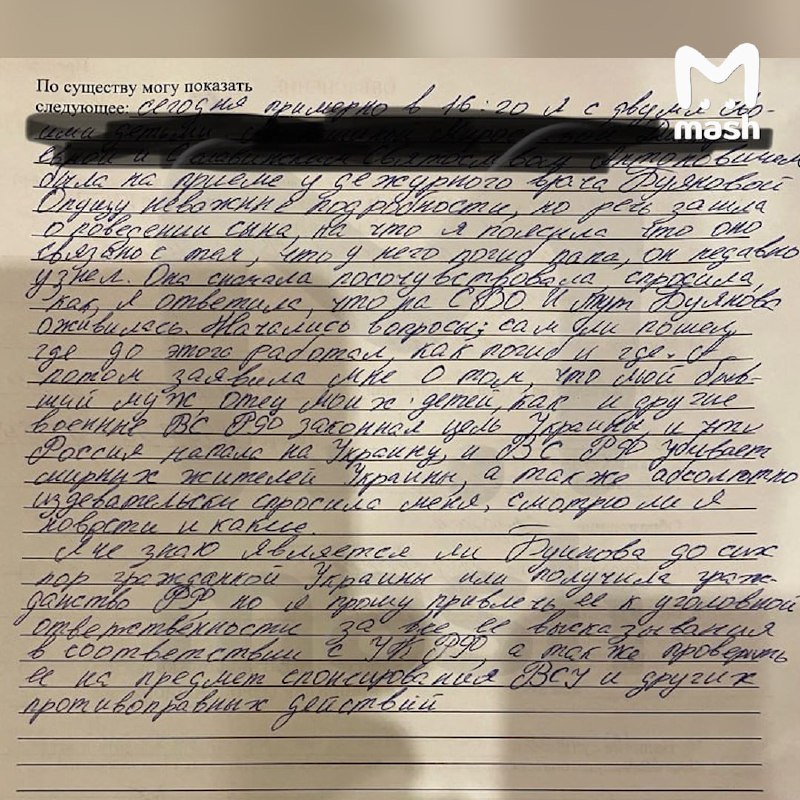 mash
По существу могу показать
следующее: сегодня примерно в 16:20 я с двумя сво-
ими детьми
и Святославом Антоновичем
была на приеме у дежурного врача Буяновой
Опущу неважные подробности, но речь зашла
о поведении сына, на что я пояснила что оно
связано с тем, что у него погиб папа, он недавно
узнал. Она сначала посочувствовала, спросила,
как, я ответила, что на СВО. И тут Буянова
оживилась. Начались вопросы: сам ли пошел,
где до этого работал, как погиб и где. А
потом заявила мне о том, что мой быв-
ший муж, отец моих детей, как и другие
военные ВС РФ законная цель Украины и что
Россия напала на Украину, и ВС РФ убивает
мирных жителей Украины, а также абсолютно
издевательски спросила меня, смотрю ли я
новости и какие.
Я не знаю является ли Буянова до сих
пор гражданкой Украины или получила граж-
данство РФ, но я прошу привлечь ее к уголовной
ответственности за все ее высказывания
в соответствии с УК РФ, а также проверить
ее на предмет спонсирования ВСУ и других
противоправных действий